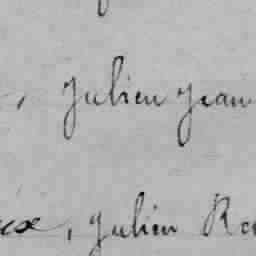 , Julien Jean
, Julien